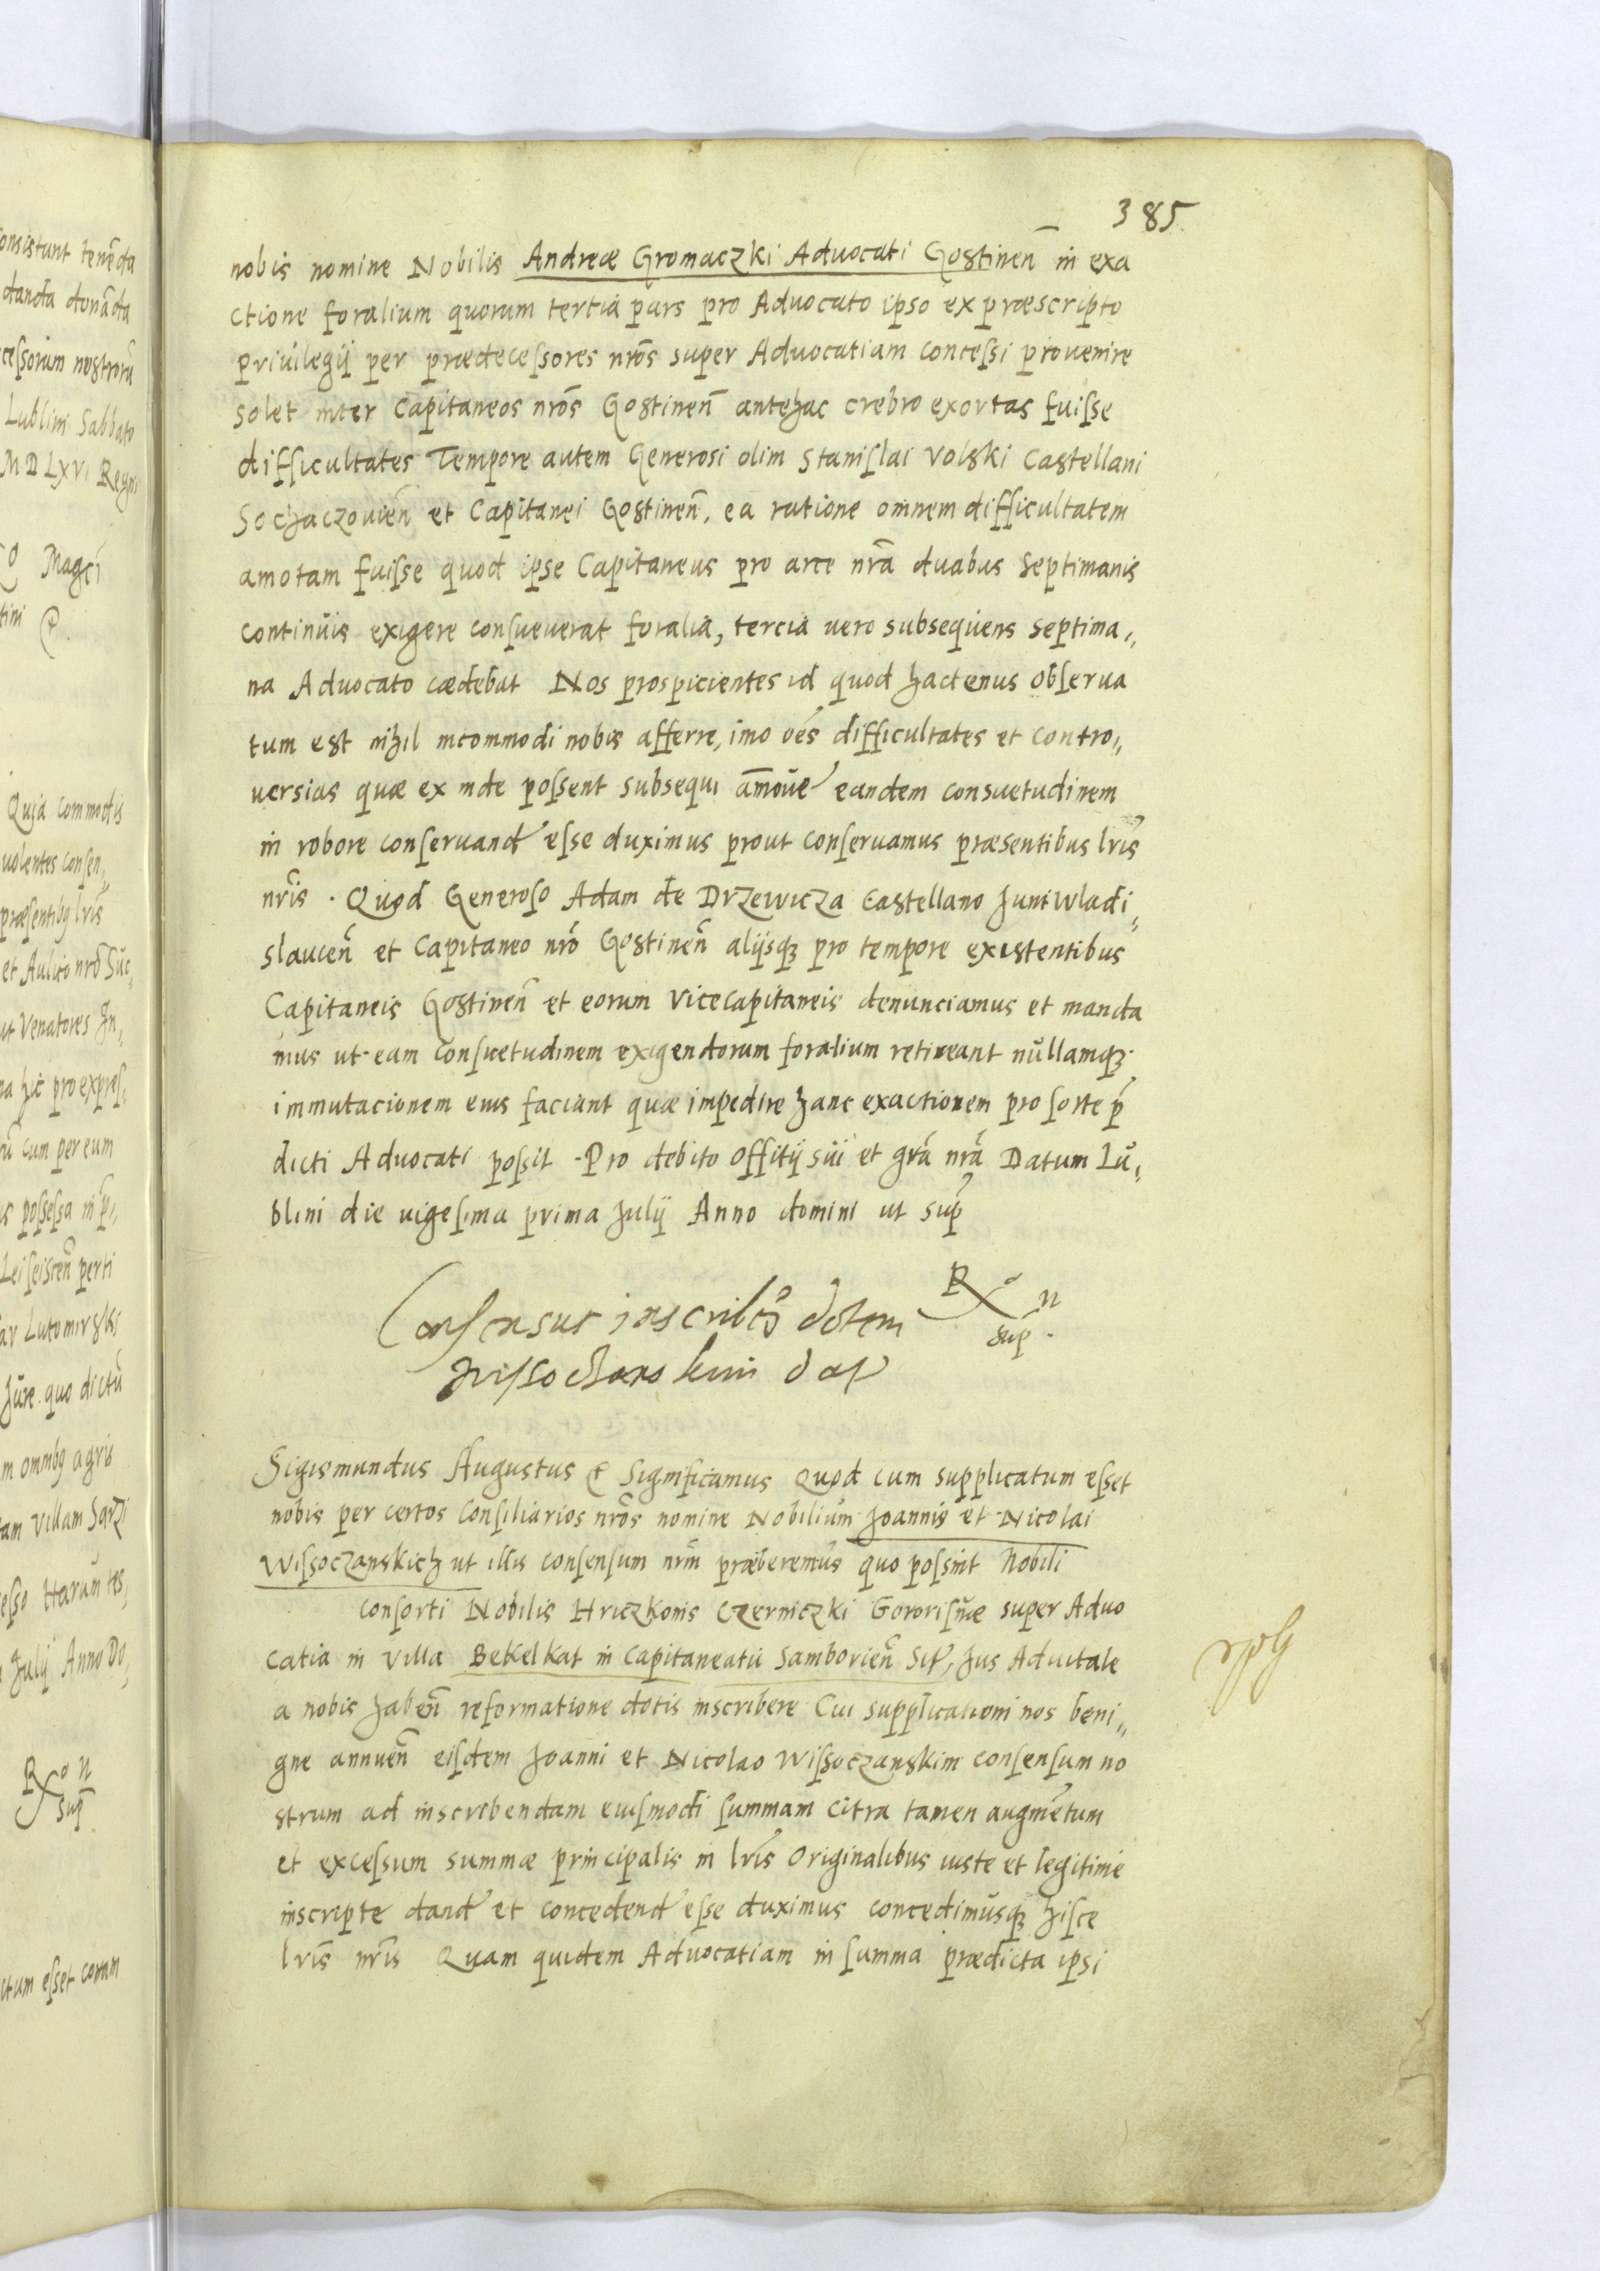 385
nobis nomine Nobilis Andreæ Gromaczki Advocati Gostinen̄ in exa
ctione foralium quorum tertia pars pro Advocato ipso ex præscripto
Priuilegij per prædecessores nr̄os super Advocatiam concessi prouenire
solet inter Capitaneos nr̄os Gostinen̄ antehac crebro exortas fuisse
difficultates Tempore autem Generosi olim Stanislai Volski Castellani
Sochaczouien̄ et Capitanei Gostinen̄, ea ratione omnem difficultatem
amotam fuisse quod ipse Capitaneus pro arce nr̄a duabus Septimanis
continuis exigere consueuerat foralia, tercia uero subsequens septima„
na Advocato cædebat Nos prospicientes id quod hactenus obserua
tum est nihil incommodi nobis afferre, imo oēs difficultates et contro„
uersias quæ ex inde possent subsequi am̄oue eandem consuetudinem
in robore conseruand esse duximus prout conseruamus præsentibus lr̄is
nr̄is . Quod Generoso Adam de Drzewicza Castellano Juniwladi„
slauien̄ et Capitaneo nr̄o Gostinen̄ alijsq; pro tempore existentibus
Capitaneis Gostinen̄ et eorum Vicecapitaneis denunciamus et manda
mus ut eam consuetudinem exigendorum foralium retineant nullamq;
immutacionem eius faciant quæ impedire hanc exactionem pro sorte p̄
dicti Advocati possit . Pro debito offitij sui et gr̄a nr̄a Datum Lu„
blini die uigesima prima Julij Anno domini ut sup̄
R o n
sup .
Consensus dotem
Sigismundus Augustus Significamus Quod cum supplicatum esset
nobis per certos Consiliarios nr̄os nomine Nobilium Joannis et Nicolai
Wissoczanskich ut illis consensum nr̄m præberemus quo possint Nobili
consorti Nobilis Hriczkonis Czerniczki super Advo
catia in Villa Bekelkat in Capitaneatu Samborien̄ Sit, Jus Aduitale
a nobis haben̄ reformatione dotis inscribere Cui supplicationi nos beni„
gne annuen̄ eisdem Joanni et Nicolao Wissoczanskim consensum no
strum ad inscribendam eiusmodi summam citra tamen augmētum
et excessum summæ principalis in lr̄is Originalibus iuste et legitime
inscripte dand et concedend esse duximus concedimusq; hisce
lr̄is nr̄is Quam quidem Advocatiam in summa prædicta ipsi